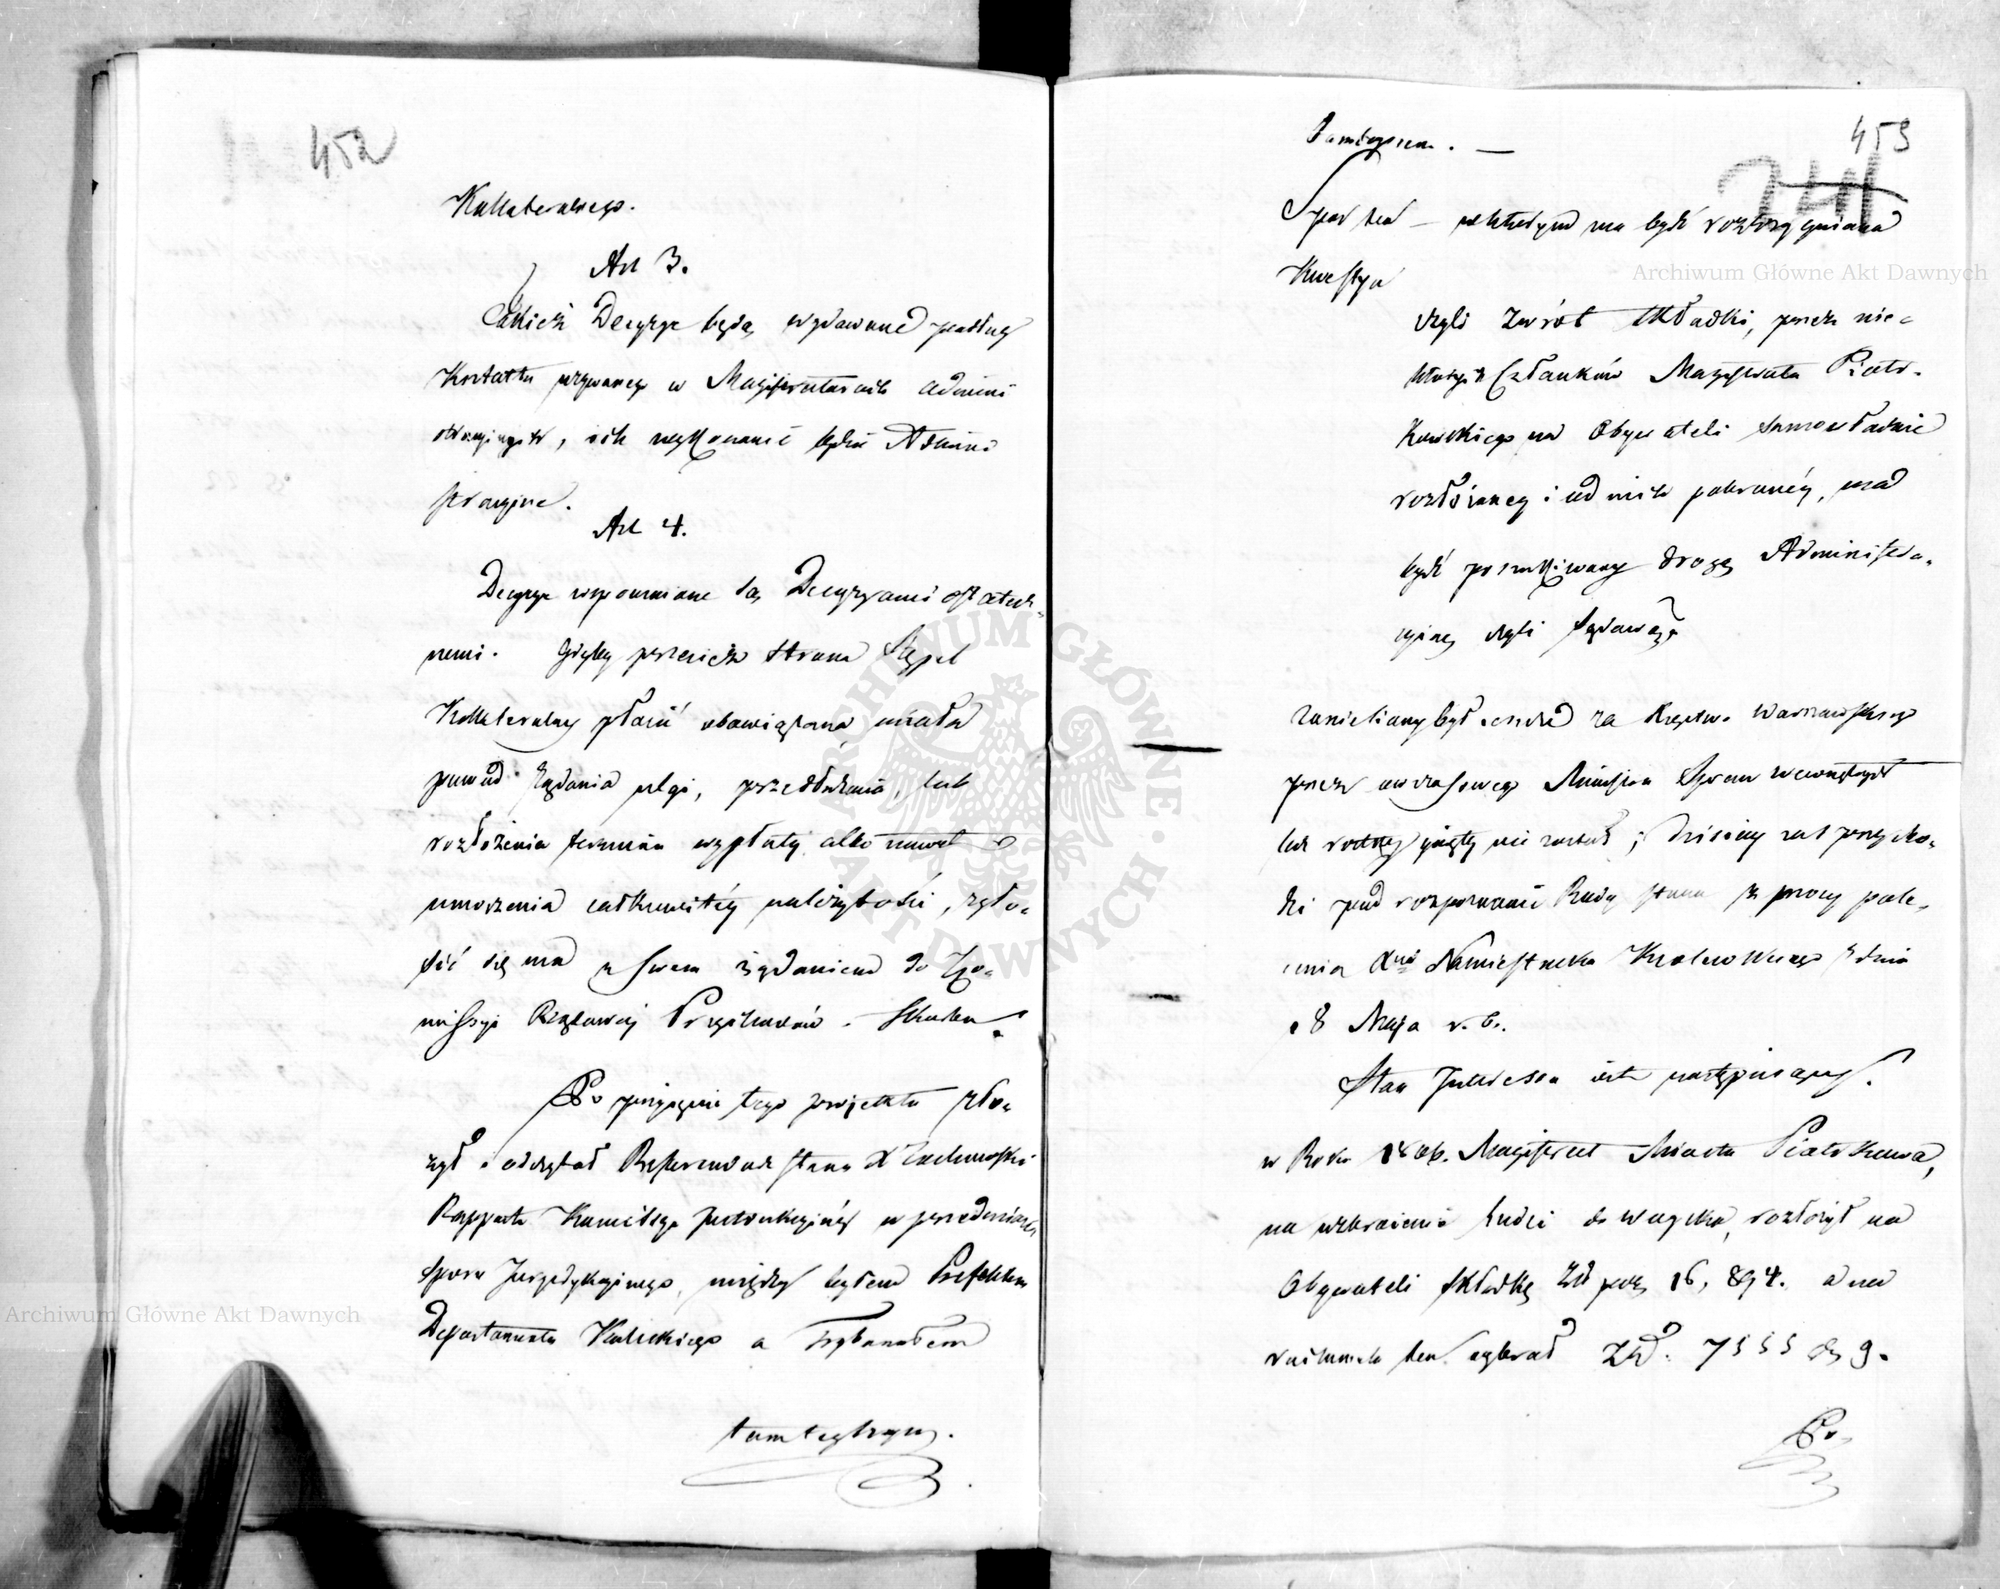 452
Kollateralnego.
Art 3.
Takież Decyzye będą wydawane podług
Kształtu używanego w Magistraturach admini
stracyjnych, ich wykonanie będzie Admini
stracyjne.
Art 4.
Decyzye wspomniane są Decyzyami ostatecz-
nemi. Gdyby przecież strona Stępel
Kollateralny płacić obowiązana, miała
powód żądania ulgi, przedłużenia, lub
rozłożenia terminu wypłaty, albo nawet
umorzenia całkowitéy należytości, zgło-
sić się ma z swem żądaniem do Kom-
missyi Rządowéy Przychodów i Skarbu.
Po przyjęciu tego projektu zło-
żył i odczytał Referendarz Stanu
Rapport Komitetu Instrukcyinéy w przedmiocie
sporu Juryzdykcyjnego, między byłem Prefektem
Departamentu Kaliskiego a Trybunałem
tamteyszym.
453
Tamteyszem. —
Spór ten — w którym ma bydź rozstrzygniona
Kwestya
czyli zwrot składki, przez nie-
których Członków Magistratu Piotr-
kowskiego na Obywateli samowładnie
rozłożoney i od nich pobranéy, ma
bydź poszukiwany drogą Administra-
cyiną czyli sądową?
zanieciany był ieszcze za Xięstwa Warszawskiego
przez owczasowego Ministra Spraw wewnętrznych
lecz rozstrzygnięty nie został; dzisiay zaś przycho-
dzi pod rozpoznanie Rady Stanu z mocy pole-
cenia Xcia Namiestnika Królewskiego z dnia
18 Maja r. b.
Stan Interessu iest następuiący.
w Roku 1806. Magistrat Miasta Piotrkowa,
na uzbroienie ludzi do woyska, rozłożył na
Obywateli składkę Zł pol 16,894. a na
rachunek ten wybrał Zł. 7555 gr 9.
Po
Archiwum Główne Akt Dawnych
Archiwum Główne Akt Dawnych
ARCHIWUM GŁÓWNE AKT DAWNYCH